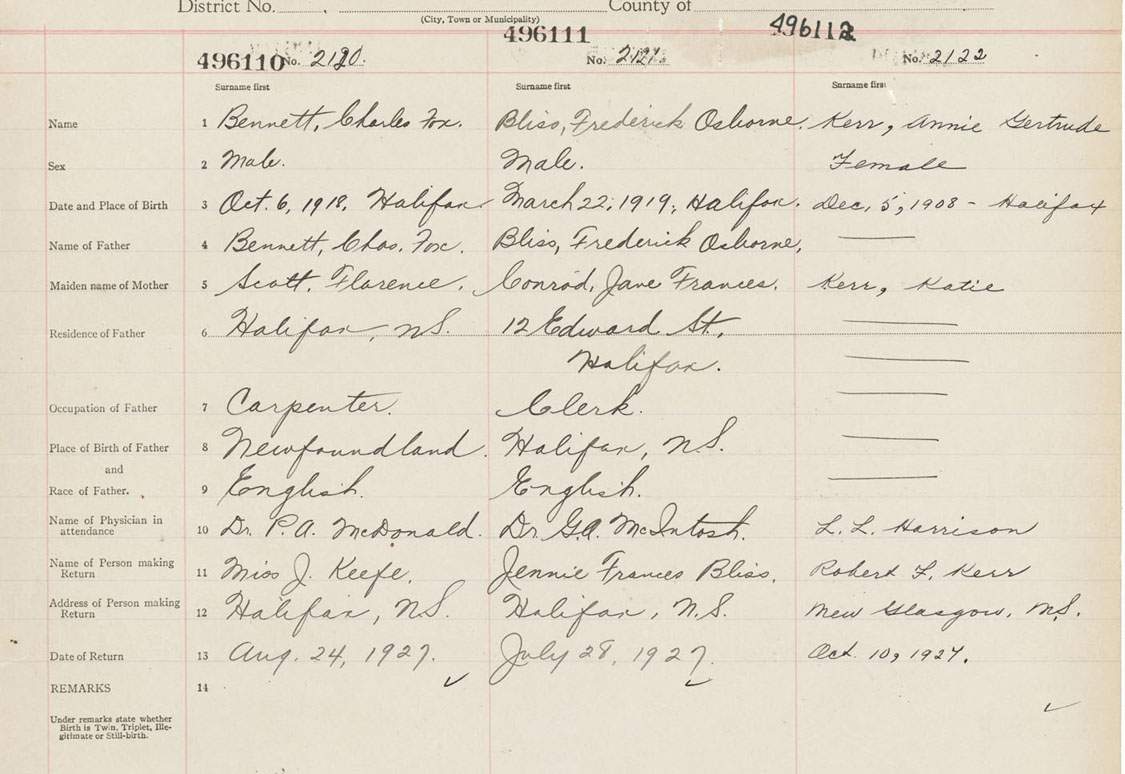 District No. County of
(City, Town or Municipality)
496110 No. 2120. 496111 No. 2121. 496112 No. 2122
Surname first Surname first Surname first
Name 1 Bennett, Charles Fox. Bliss, Frederick Osborne. Kerr, Annie Gertrude
Sex 2 Male. Male. Female
Date and Place of Birth 3 Oct. 6, 1918, Halifax March 22, 1919, Halifax. Dec. 5, 1908 - Halifax
Name of Father 4 Bennett, Chas. Fox. Bliss, Frederick Osborne,
Maiden name of Mother 5 Scott, Florence. Conrod, Jane Frances. Kerr, Katie
Residence of Father 6 Halifax, N.S. 12 Edward St,
Halifax.
Occupation of Father 7 Carpenter. Clerk.
Place of Birth of Father 8 Newfoundland. Halifax, N.S.
and
Race of Father. 9 English. English.
Name of Physician in
attendance 10 Dr. P.A. McDonald. Dr. G.A. McIntosh. L. L. Harrison
Name of Person making
Return 11 Miss J. Keefe. Jennie Frances Bliss. Robert L. Kerr
Address of Person making
Return 12 Halifax, N.S. Halifax, N.S. New Glasgow, N.S.
Date of Return 13 Aug. 24, 1927. July 28, 1927. Oct. 10, 1927.
REMARKS 14
Under remarks state whether
Birth is Twin, Triplet, Ille-
gitimate or Still-birth.